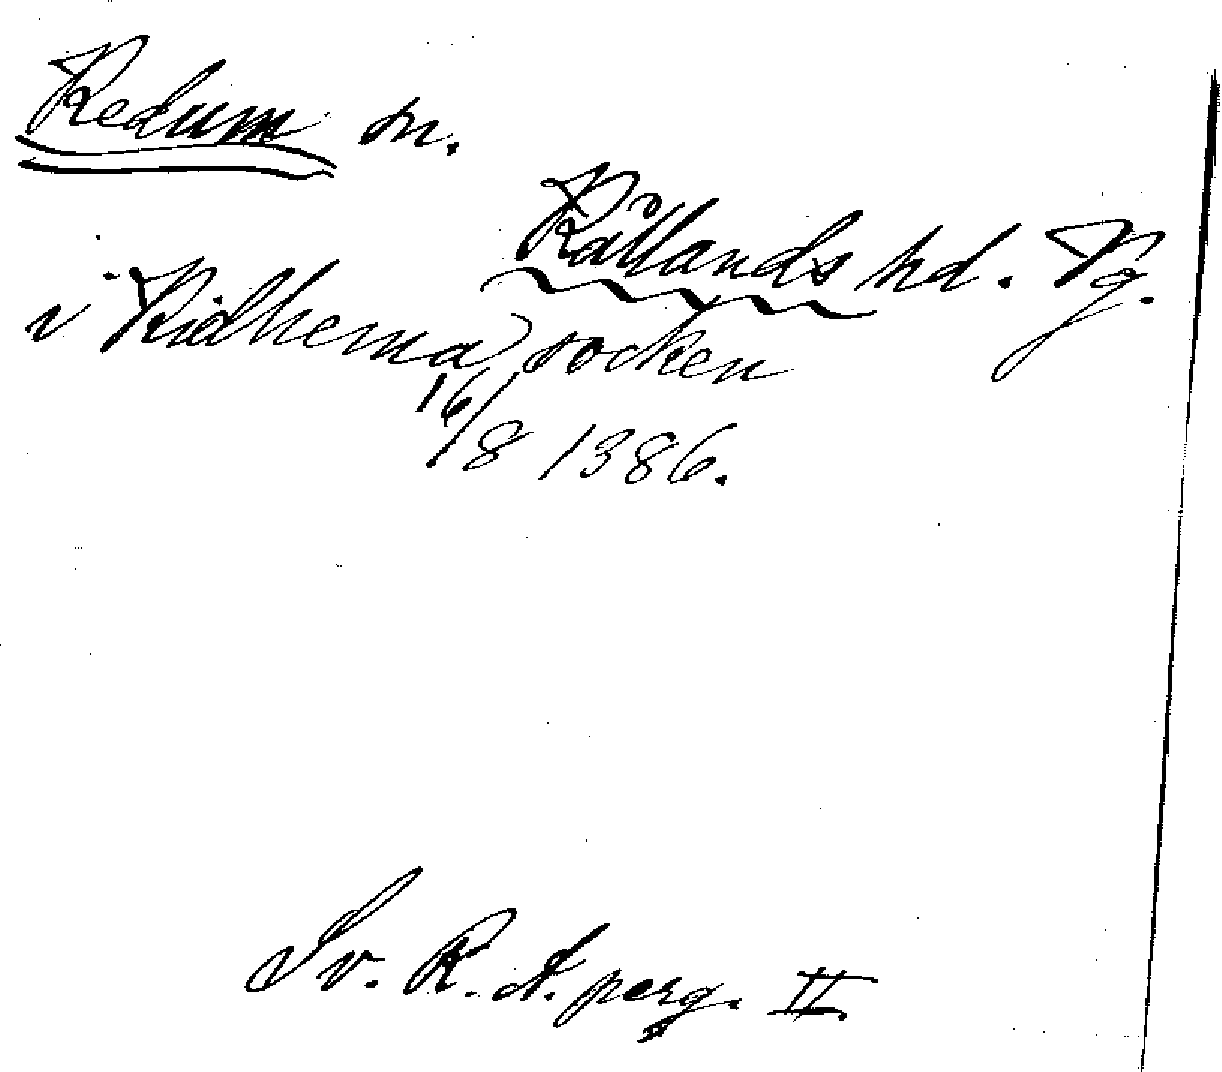 Kedum sn.
Kållands hd. Vg.
i Kidhema socken
16/8 1386.
Sv. R. A. perg. II.